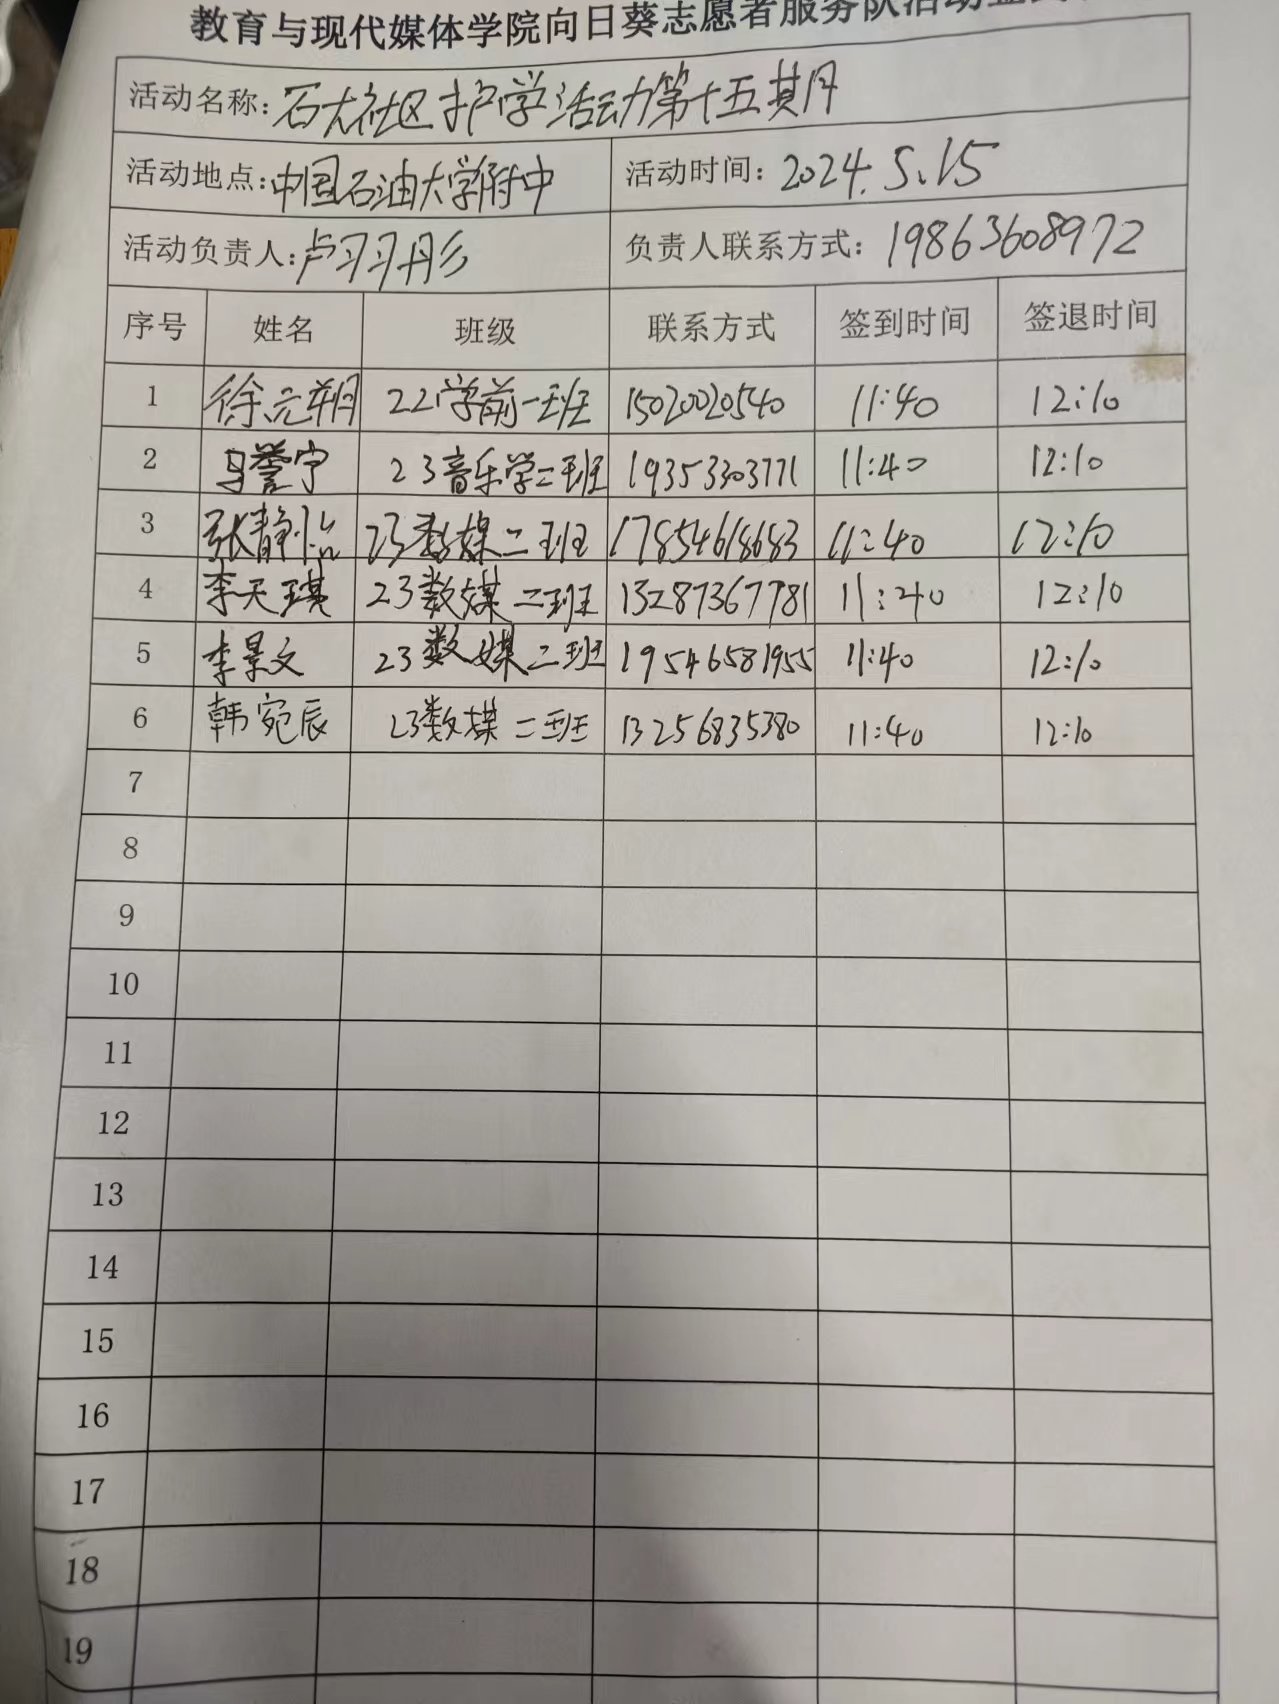 教育与现代媒体学院向日葵志愿者服务队活动
活动名称：石大社区护学活动第十五期
活动地点：中国石油大学附中 活动时间：2024.5.15
活动负责人：卢翮彤 负责人联系方式：19863608972
序号 姓名 班级 联系方式 签到时间 签退时间
1 徐元朔 22学前一班 15020020540 11:40 12:10
2 马誉宁 23音乐学二班 19353303771 11:40 12:10
3 张静怡 23数媒二班 17854618683 11:40 12:10
4 李天琪 23数媒二班 13287367781 11:40 12:10
5 李景文 23数媒二班 19546581955 11:40 12:10
6 韩宛辰 23数媒二班 13256835380 11:40 12:10
7
8
9
10
11
12
13
14
15
16
17
18
19